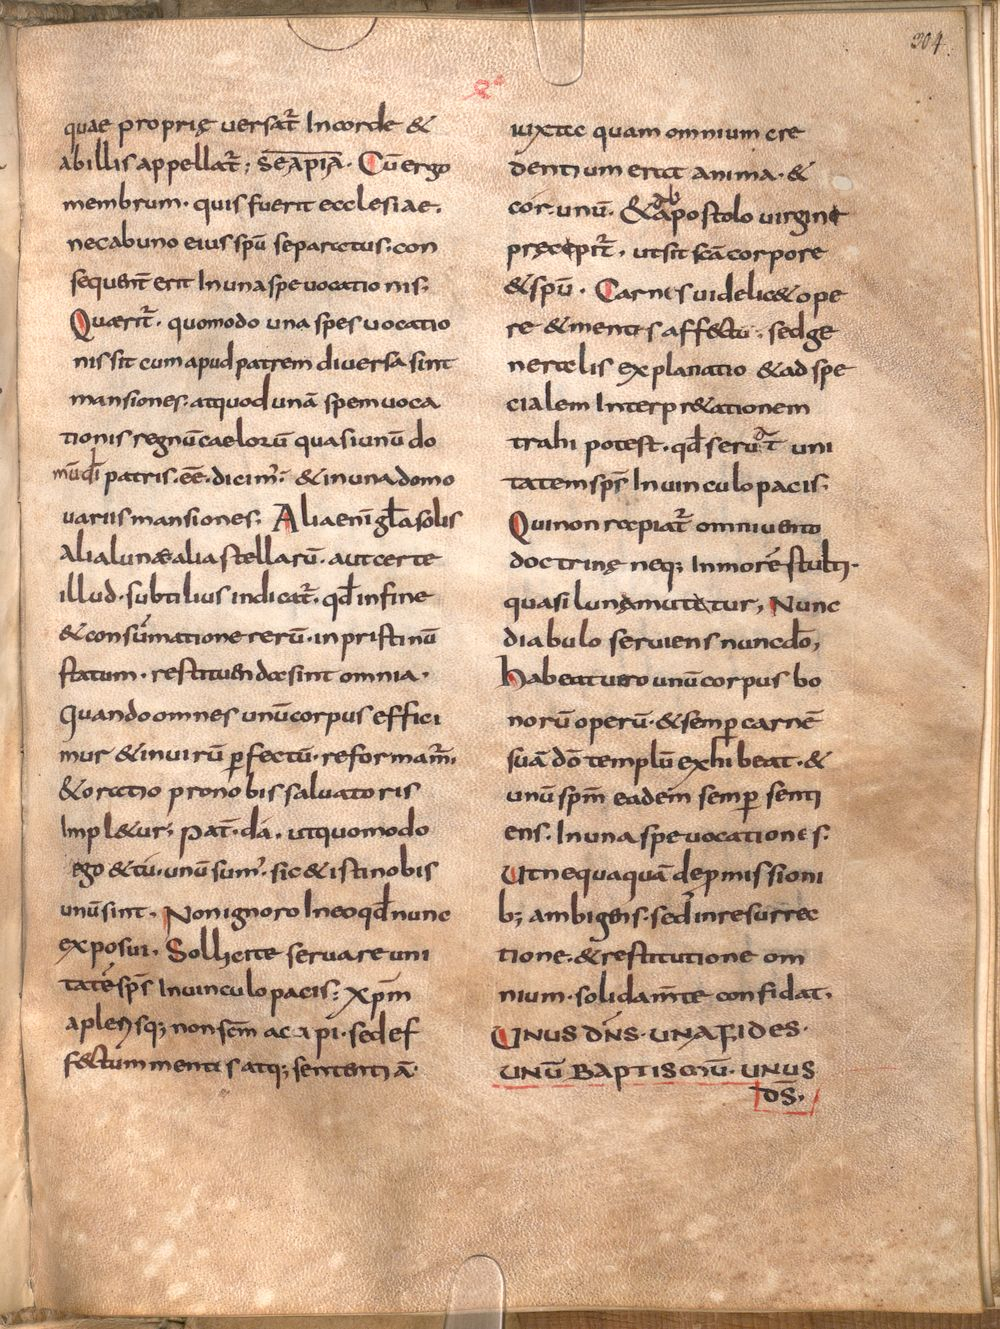 304.
quae proprię uersat̄ In corde &
ab illis appellat̄; SEAPIĀ. Cū ergo
membrum. quis fuerit ecclesiae.
nec ab uno eius sp̄u separatus. con
sequent̄ erit In una spe uocationis;
Quaerit̄. quomodo una spes uocatio
nis sit cum apud patrem diuersa sint
mansiones. at quod unā spem uoca
tionis regnū caelorū quasi unū do
mū qd̄ patris. ee̅. dicim̕. & in una domo
uariis mansiones; Alia eni̅ gl̄a solis
alia lunae alia stellarū. aut certe
illud. subtilius indicat̄. qd̄ in fine
& consūmatione rerū. in pristinū
statum. restituenda sint omnia.
Quando omnes unū corpus effici
mur & in uirū ꝑfectū. reformam̄.
& oratio pro nobis saluatoris
Impl&ur; Pat̄. da. ut quomodo
ego & tu. unū sum̕. sic & isti nobis
unū sint. Non ignoro In eo qd̄ nunc
exposui. Sollicite seruare uni
tatē sp̄s In uinculo pacis; xp̄m
a plerisq; non scm̄ accapi. sed ef
fectum mentis atq; sententiā.
iuxta quam omnium cre
dentium erat anima. &
cor. unū. & ab apostolo uirgini
pręcipit̄. ut sit sc̄a corpore
& sp̄u. Carnis uidelic& ope
re & mentis affectu. sed ge
neralis explanatio & ad spe
cialem Interpr&ationem
trahi potest. qd̄ seruat uni
tatem sp̄s In uinculo pacis;
Qui non rapiat̄ omni uento
doctrinę neq; In more stulti.
quasi luna mutatur, Nunc
diabulo seruiens nunc dō,
habeat uero unū corpus bo
norū operū. & semꝑ carnē
suā dō templū exhibeat. &
unū sp̄m eadem semꝑ senti
ens. In una spe uocationis.
Ut nequaquā de ꝓmissioni
b; ambigens. sed in resurrec
tione. & restitutione om
nium. solidam̄te confidat.
UNUS DN̄S. UNA FIDES.
UNŪ BAPTISMŪ. UNUS
DS̄.